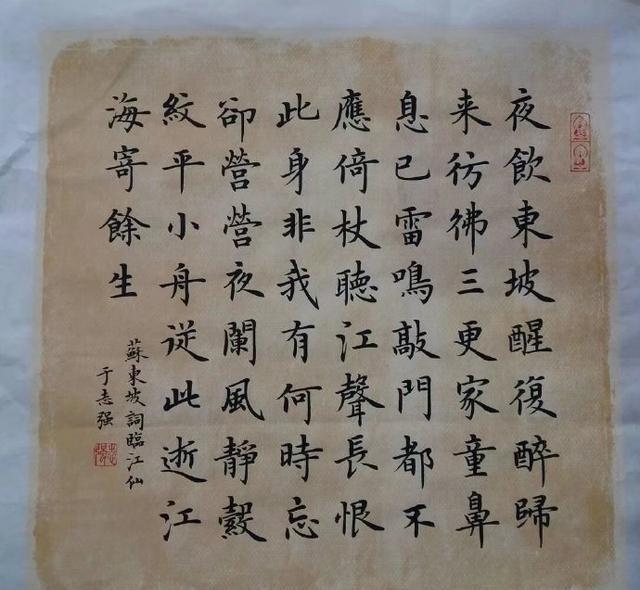 夜飲東坡醒復醉歸
来彷彿三更家童鼻
息已雷鳴敲門都不
應倚杖聽江聲長恨
此身非我有何時忘
卻營營夜闌風靜縠
紋平小舟従此逝江
海寄餘生
蘇東坡詞臨江仙
于志强